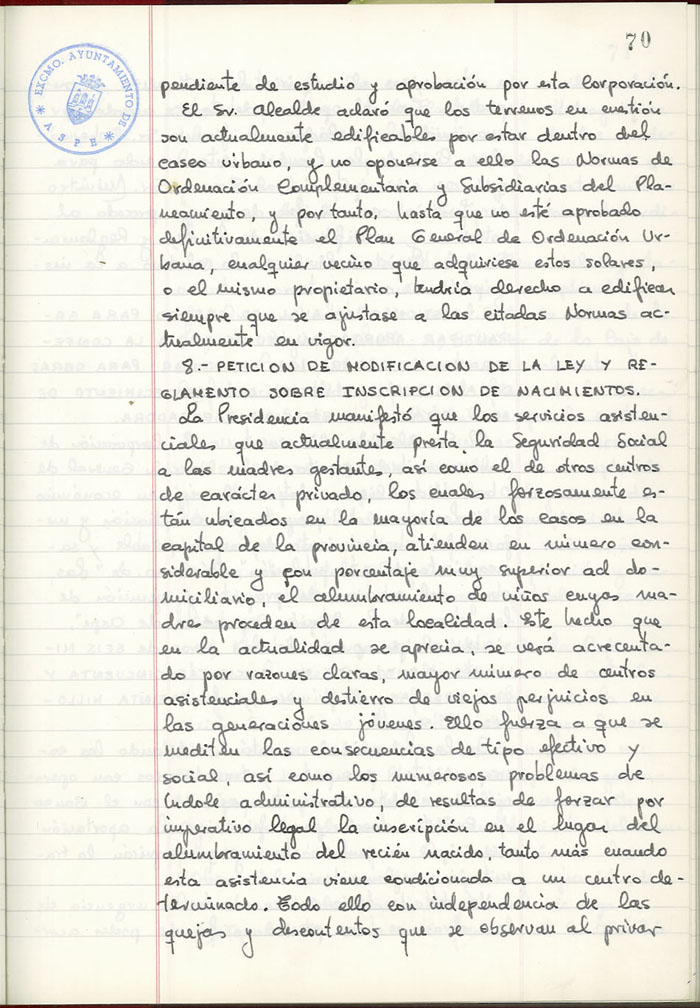 70
EXCMO. AYUNTAMIENTO DE
* ASPE *
pendiente de estudio y aprobación por esta Corporación.
El Sr. Alcalde aclaró que los terrenos en cuestión
son actualmente edificables por estar dentro del
casco urbano, y no oponerse a ello las Normas de
Ordenación Complementaria y Subsidiarias del Pla-
neamiento, y por tanto, hasta que no esté aprobado
definitivamente el Plan General de Ordenación Ur-
bana, cualquier vecino que adquiriese estos solares,
o el mismo propietario, tendría derecho a edificar
siempre que se ajustase a las citadas Normas ac-
tualmente en vigor.
8.- PETICION DE MODIFICACION DE LA LEY Y RE-
GLAMENTO SOBRE INSCRIPCION DE NACIMIENTOS.
La Presidencia manifestó que los servicios asisten-
ciales que actualmente presta la Seguridad Social
a las madres gestantes, así como el de otros centros
de carácter privado, los cuales forzosamente es-
tán ubicados en la mayoría de los casos en la
capital de la provincia, atienden en número con-
siderable y con porcentaje muy superior ad do-
miciliario, el alumbramiento de niños cuyas ma-
dres proceden de esta localidad. Este hecho que
en la actualidad se aprecia, se verá acrecenta-
do por razones claras, mayor número de centros
asistenciales y destierro de viejos perjuicios en
las generaciones jóvenes. Ello fuerza a que se
mediten las consecuencias de tipo efectivo y
social, así como los numerosos problemas de
índole administrativo, de resultas de forzar por
imperativo legal, la inscripción en el lugar del
alumbramiento del recién nacido, tanto más cuando
esta asistencia viene condicionada a un centro de-
terminado. Todo ello con independencia de las
quejas y descontentos que se observan al privar